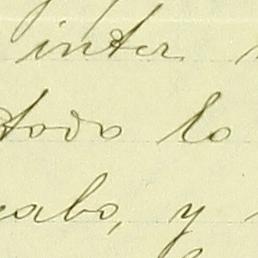 inter
todo lo
cabo, y